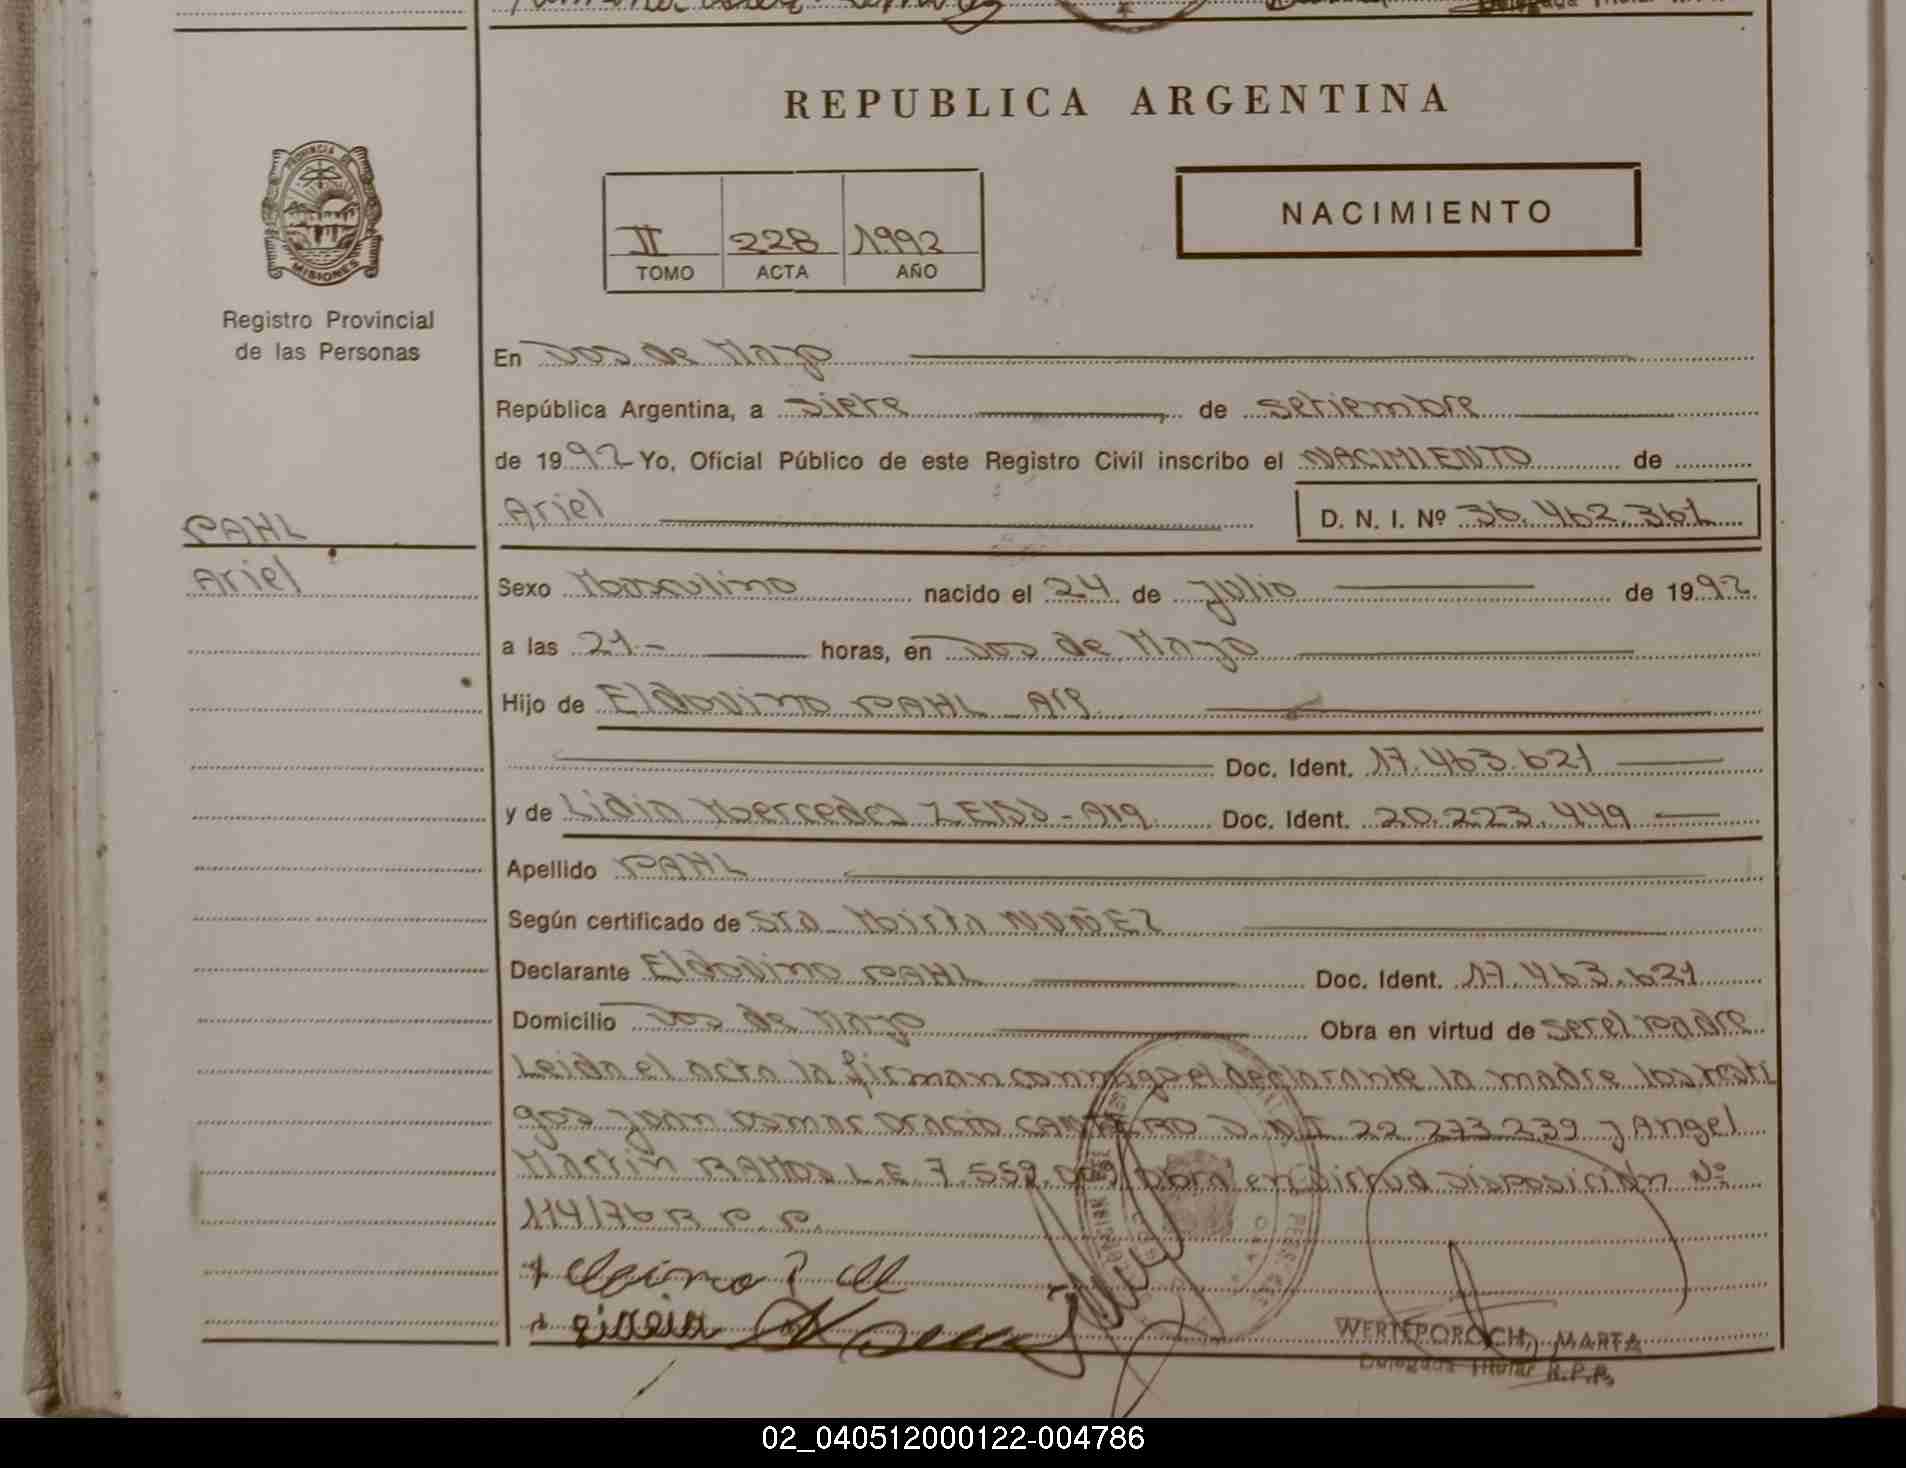 REPUBLICA ARGENTINA
PROVINCIA DE
MISIONES
Registro Provincial
de las Personas
II 228 1992
TOMO ACTA AÑO
NACIMIENTO
En Dos de Mayo
República Argentina, a siete de setiembre
de 1992 Yo, Oficial Público de este Registro Civil inscribo el NACIMIENTO de
Ariel
D. N. I. Nº 36.462.361
PAHL
Ariel
Sexo Masculino nacido el 24 de julio de 1992
a las 21.- horas, en Dos de Mayo
Hijo de Eldovino PAHL - Arg.
Doc. Ident. 17.463.621
y de Lidia Mercedes ZEISS - Arg. Doc. Ident. 20.223.449
Apellido PAHL
Según certificado de Sra. Mirta NUÑEZ
Declarante Eldovino PAHL Doc. Ident. 17.463.621
Domicilio Dos de Mayo Obra en virtud de ser el padre
Leida el acta la firman conmigo el declarante la madre los testi
gos Juan Osmar Oracio CANTERO D.N.I 22 273 239 y Angel
Martin RAMOS L.E. 7.559.009 Obra en virtud Disposición Nº
114/76 R.P.P.
WERTEPOROCH, MARTA
Delegada Titular R.P.P.
02_040512000122-004786